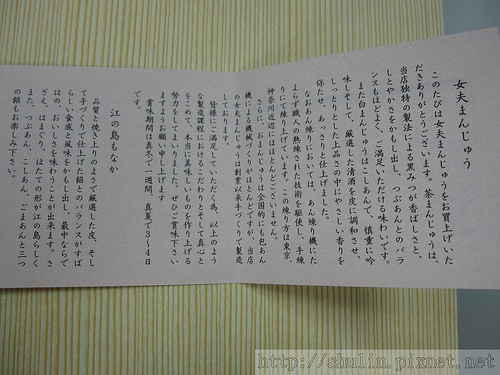 女夫まんじゅう
このたびは女夫まんじゅうをお買上げいた
だきありがとうございます。茶まんじゅうは、
当店独特の製法による黒みつが香ばしさと、
しとやかさをかもし出し、つぶあんとのバラ
ンスもほどよく、ご満足いただける味わいです。
また白まんじゅうはこしあんで、慎重に吟
味しそして、厳選した清酒を皮に調和させ、
しっとりとした上品さの中にやさしい香りを
保たせ、あっさりと仕上げました。
なおあん練りにおいては、あん練り機にた
よらず職人の熟練された技術を駆使し、手練
りにて練り上げています。この練り方は東京、
神奈川近辺にはほとんどございません。
さらに、おまんじゅうは全国的にも包あん
機による機械づくりがほとんどですが、当店
の女夫まんじゅうは創業以来手づくりで製造
しております。
皆様にご満足していただく為、以上のよう
な製造課程におけるこだわりとそして真心と
をこめて、本当に美味しいものを作り上げる
努力をしてまいりました。ぜひご賞味下さい
ますようお願い申し上げます
賞味期間は真冬で一週間、真夏で3〜4日
です。
江の島もなか
品質と焼き上りのよさで厳選した皮、そし
て手づくりで仕上げた餡とのバランスがすば
らしい食感と風味をかもし出し、最中ならで
はの、おいしさを味わうことが出来ます。さ
ざえ、はまぐり、ほたての形が江の島らしく
また、つぶあん、こしあん、ごまあんと三つ
の餡もお楽しみ下さい。
http://shulin.pixnet.net